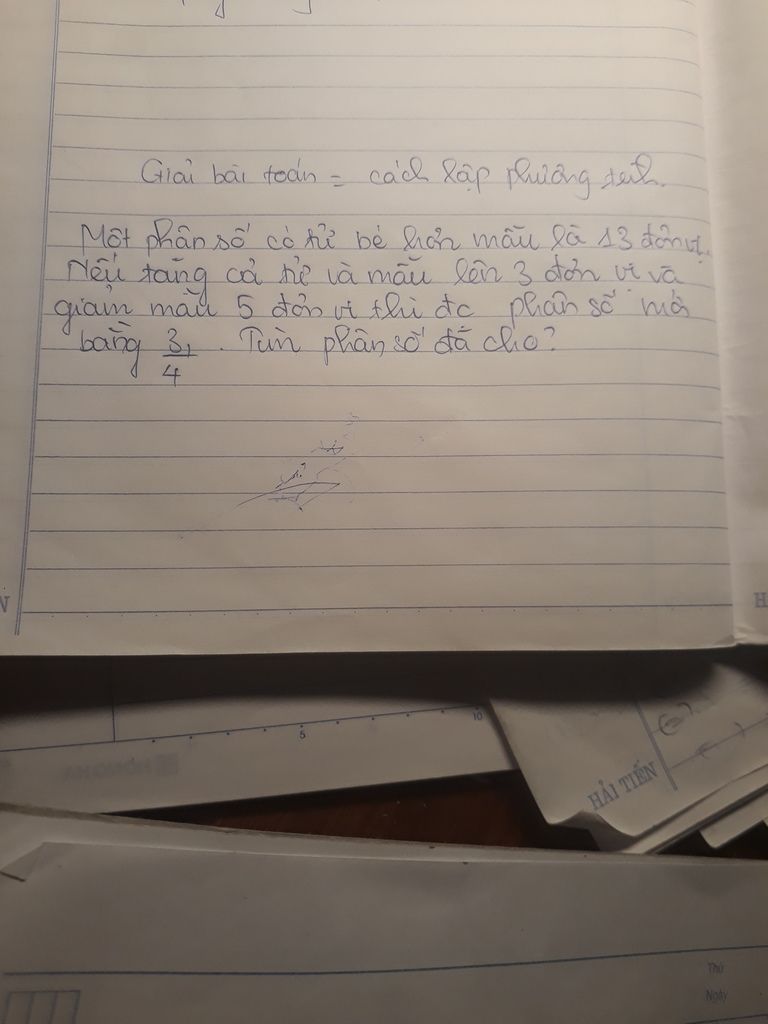 Giải bài toán = cách lập phương trình.
Một phân số có tử bé hơn mẫu là 13 đơn vị.
Nếu tăng cả tử và mẫu lên 3 đơn vị và
giảm mẫu 5 đơn vị thì đc phân số mới
bằng 3/4. Tìm phân số đã cho?
N
H
5
10
HẢI TIẾN
Thứ
Ngày